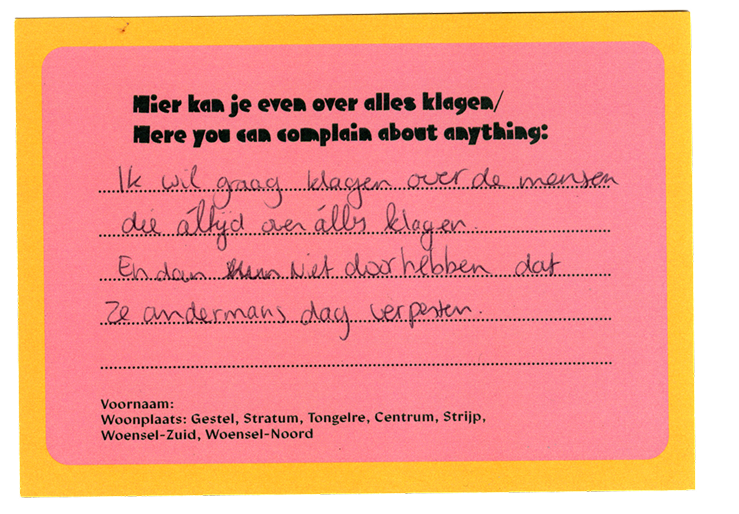 Hier kan je even over alles klagen/
Here you can complain about anything:
Ik wil graag klagen over de mensen
die áltijd over álles klagen.
En dan niet doorhebben dat
ze andermans dag verpesten.
Voornaam:
Woonplaats: Gestel, Stratum, Tongelre, Centrum, Strijp,
Woensel-Zuid, Woensel-Noord